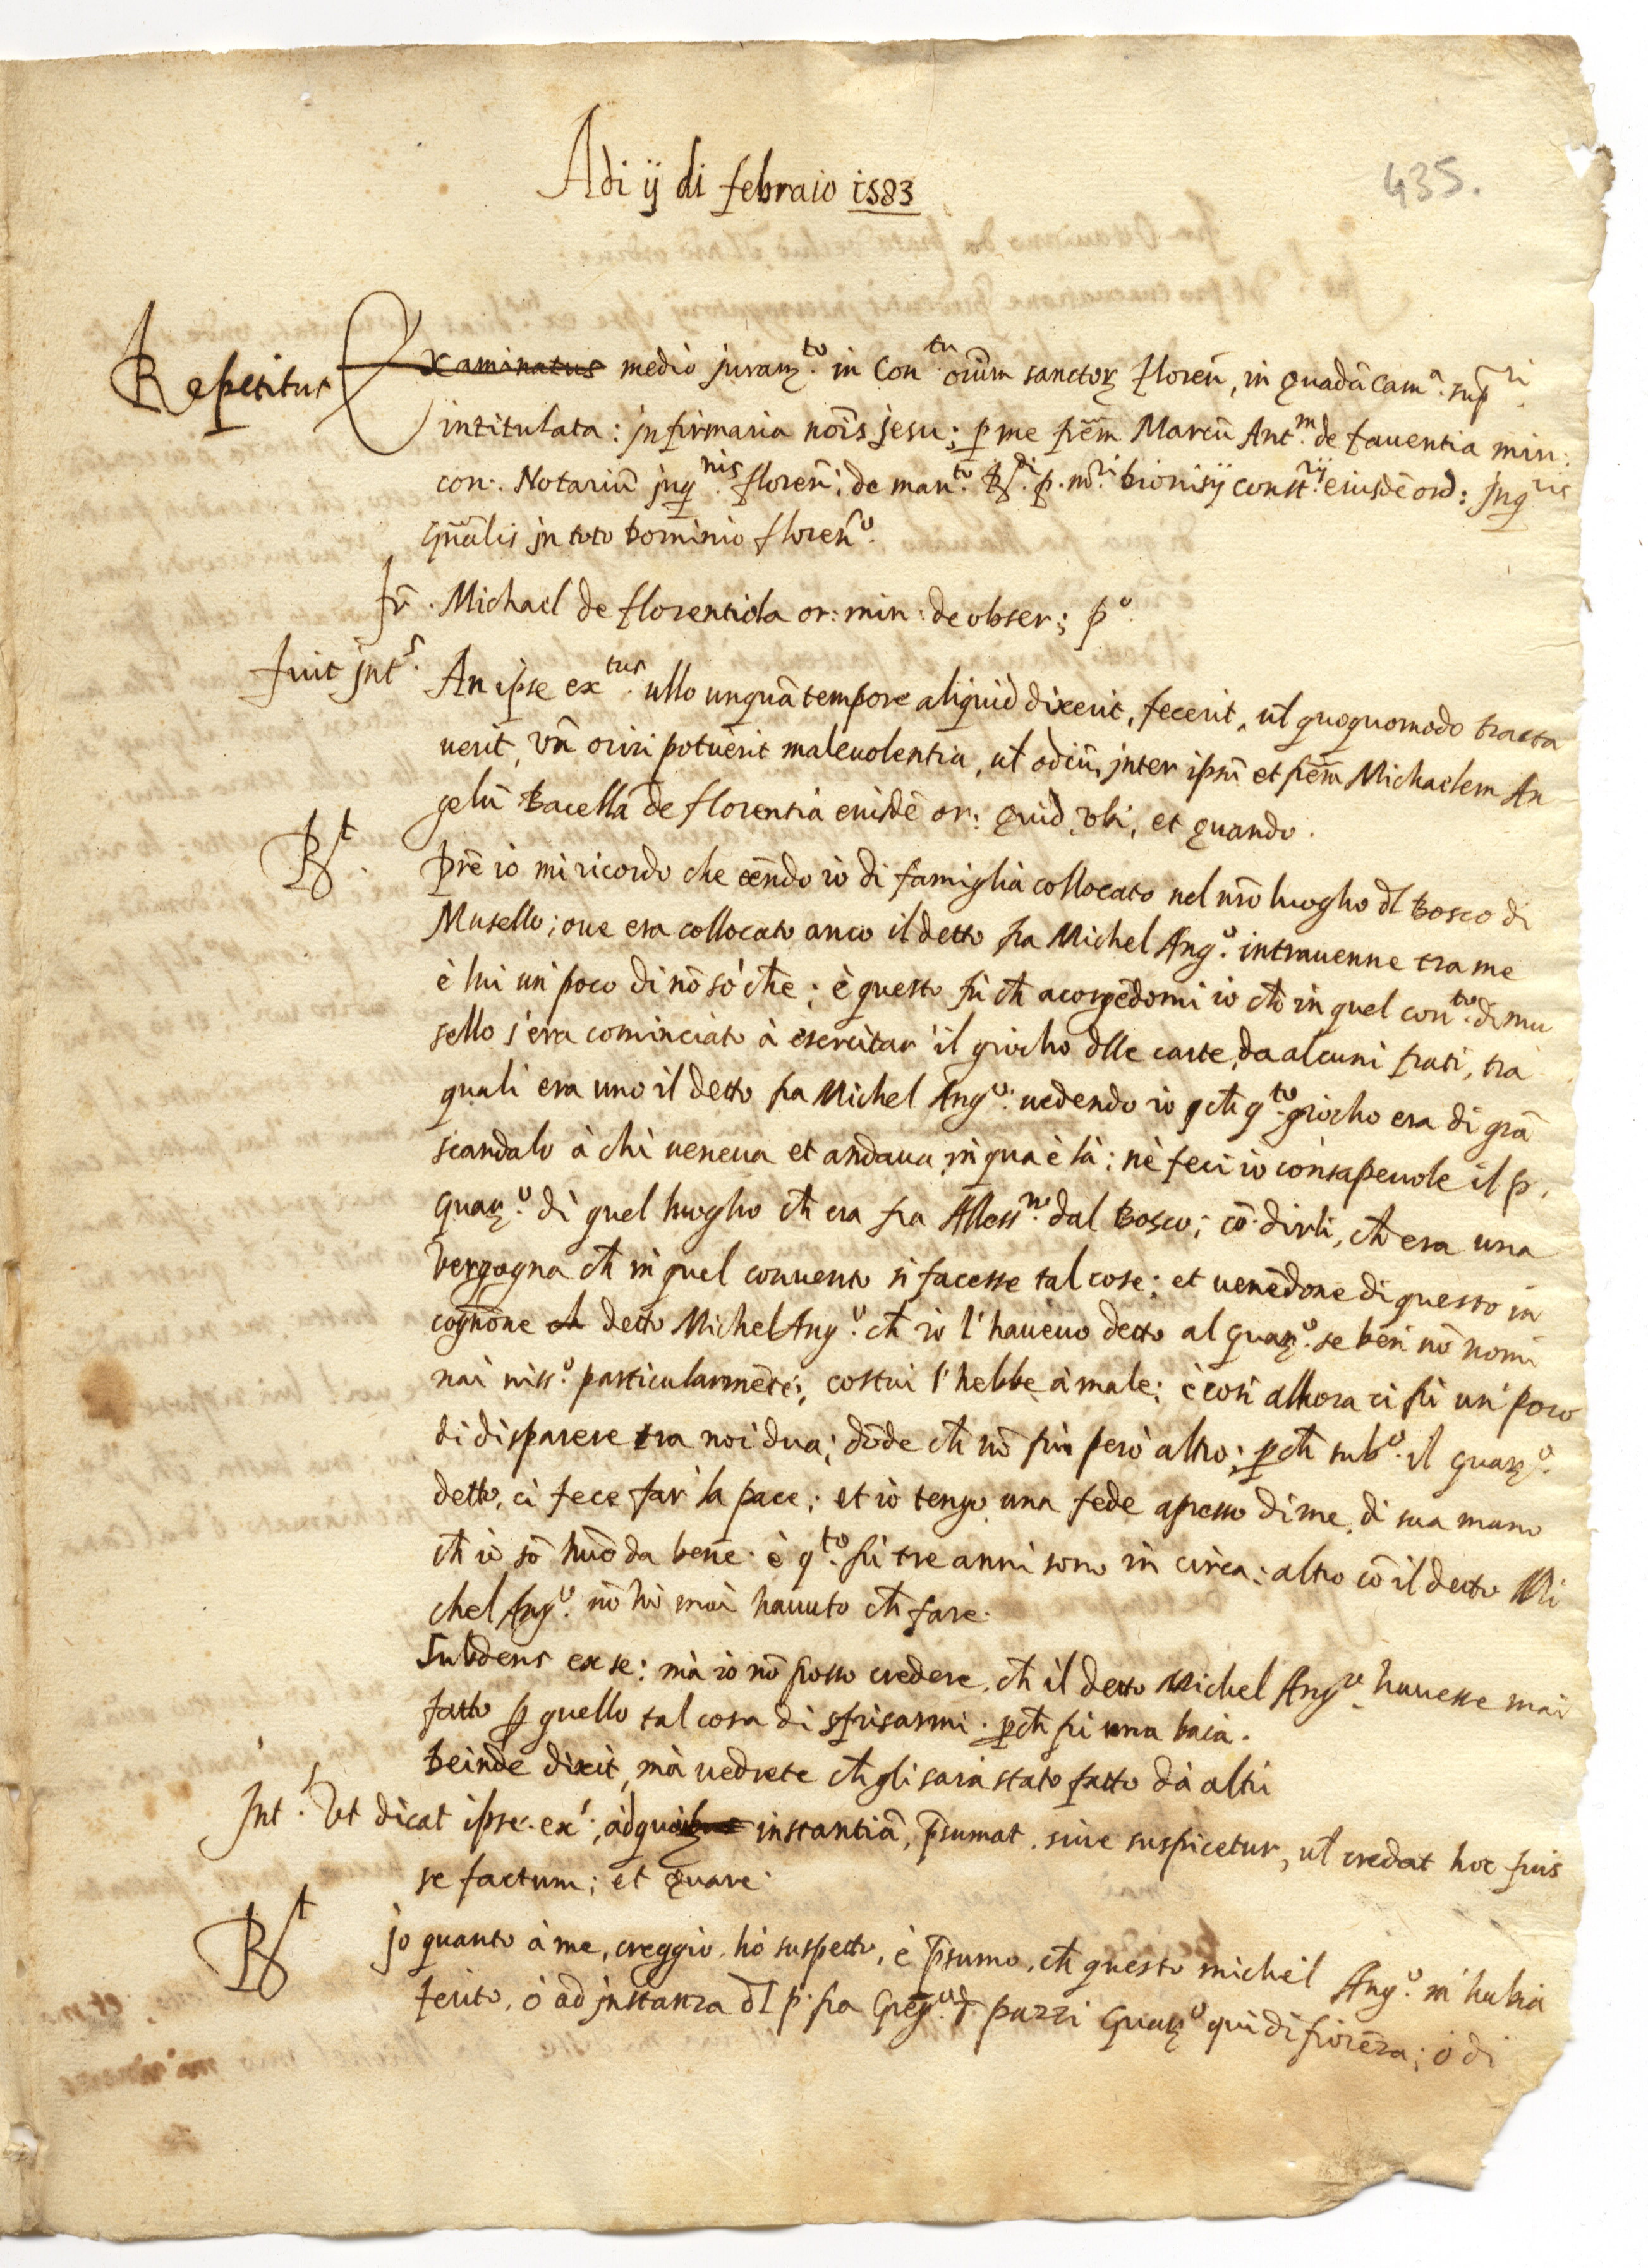 435.
Adi ij di febraio 1583
Repetitus Examinatus medio juram.to in Con.tu oiũm sanctoꝝ floreñ, in quadã cam.a sup.ri
intitulata: jnfirmaria nõis jesu; p me frẽm Marcũ Ant.m de faventia min:
con:. Notariũ jnq.nis floreñ; de man.to R.di p. m.ri Dionisij const.rij eiusdẽ ord: jnq.ris
gñalis jn toto Dominio floreñ.o
fr̃. Michael de florentiola or: min: de obser; p.o
fuit jnt.s An ipse ex.tus ullo unquã tempore aliquid dixerit, fecerit, ul̃ quoquomodo tracta
uerit, vñ oriri potuerit maleuolentia, ul̃ odiũ, jnter ipsũ et frẽm Michaelem An
gelũ Bacellã de florentia eiusdẽ or: quid, ubi, et quando.
R.t Prẽ io mi ricordo che eẽndo io di famiglia collocato nel nr̃o luogho dl̃ Bosco di
Musello; oue era collocato anco il detto fra Michel Ang.o intrauenne tra me
è lui un' poco di nõ sò ch̃e; è questo fù ch̃ acorgẽdomi io ch̃ in quel con.to di mu
sello s'era cominciato à esercitar' il giocho dlle carte, da alcuni frati, tra
quali era uno il detto fra Michel Ang.o: uedendo io ch̃ q.to giocho era di grã
scandalo à chi ueneua et andaua jn qua è là: nè feci io consapeuole il p.
guar.o di quel luogho ch̃ era fra Aless.ro dal Bosco; cõ dirli, ch̃ era una
vergogna ch̃ in quel conuento si facesse tal cose; et uenẽdone di questo in
cogñone detto Michel Ang.o ch̃ io l'haueuo detto al guar.o se ben nõ nomi
nai niss.o particularmẽte; costui l'hebbe à male; è così allhora ci fù un' poco
di disparere tra noi dua; dõde ch̃ nõ fù però altro; pch̃ sub.o il guar.o
detto, ci fece far la pace; et io tengo una fede apresso di me, di sua mano
ch̃ io sõ huõ da bene. è q.to fù tre anni sono in circa; altro cõ il detto Mi
chel Ang.o nõ hò mai hauuto ch̃ fare.
Subdens ex se: mà io nõ posso credere, ch̃ il detto Michel Ang.o hauesse mai
fatto p quello tal cosa di sfrisarmi. pch̃ fù una baia.
Deinde dixit, mà uedrete ch̃ gli sarà stato fatto dà altri
Jnt.s Vt dicat ipse ex.s, ad instantiã, p̃sumat, siue suspicetur, ul̃ credat hoc fuis
se factum; et quare.
R.t jo quanto à me, creggio, hò suspetto, è p̃sumo, ch̃ questo michel Ang.o m'habia
ferito, ò ad jnstanza dl̃ p. fra Greg.o d. pazzi Guar.o qui di fiorẽza; ò di